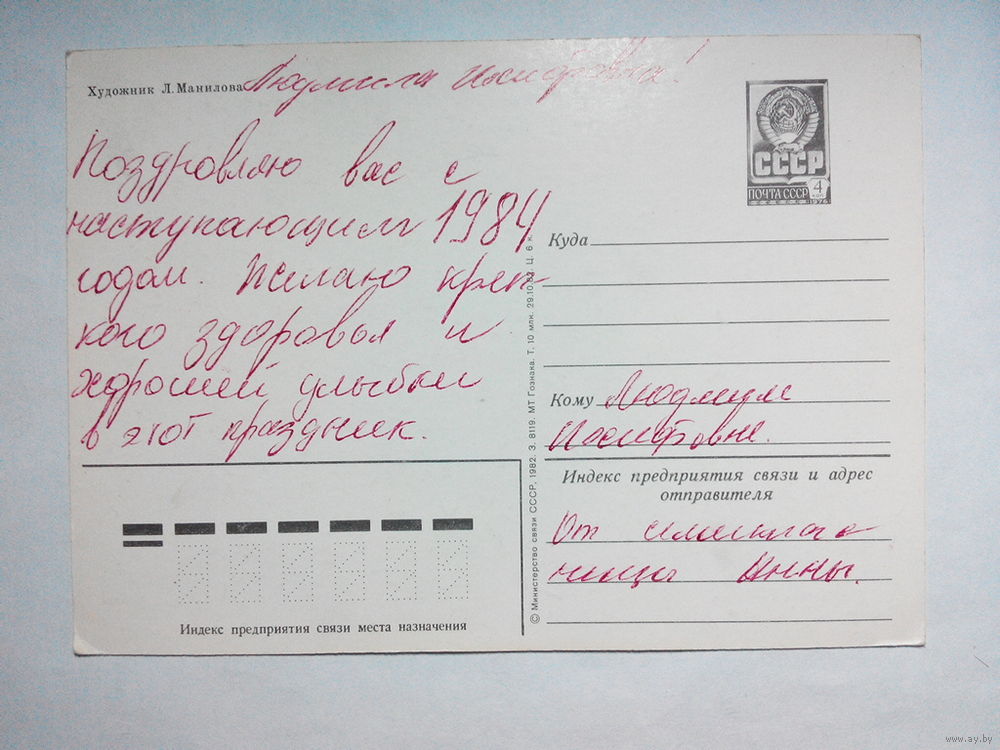 Художник Л. Манилова
Людмила Иосифовна!
Поздровляю вас с
наступающим 1984
годом. Желаю креп-
кого здоровья и
хорошей улыбки
в этот праздник.
СССР
ПОЧТА СССР 4
КОП
1976
Куда
Кому Людмиле
Иосифовне.
Индекс предприятия связи и адрес
отправителя
От
Инны.
Индекс предприятия связи места назначения
© Министерство связи СССР, 1982. З. 8119. МТ Гознака. Т. 10 млн. 29.10.82. Ц. 6 к.
www.ay.by